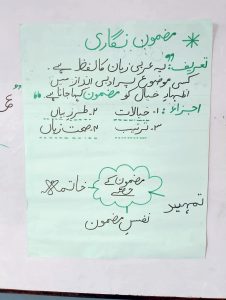 مضمون نگاری
تعریف: "یہ عربی زبان کا لفظ ہے۔
کسی موضوع پر ادبی انداز میں
اظہارِ خیال کو مضمون کہا جاتا ہے"
اجزاء: ۱. خیالات ۲. طرزِ بیاں
۳. ترتیب ۴. صحت زباں
مضمون کے
حصے
خاتمہ
تمہید
نفسِ مضمون